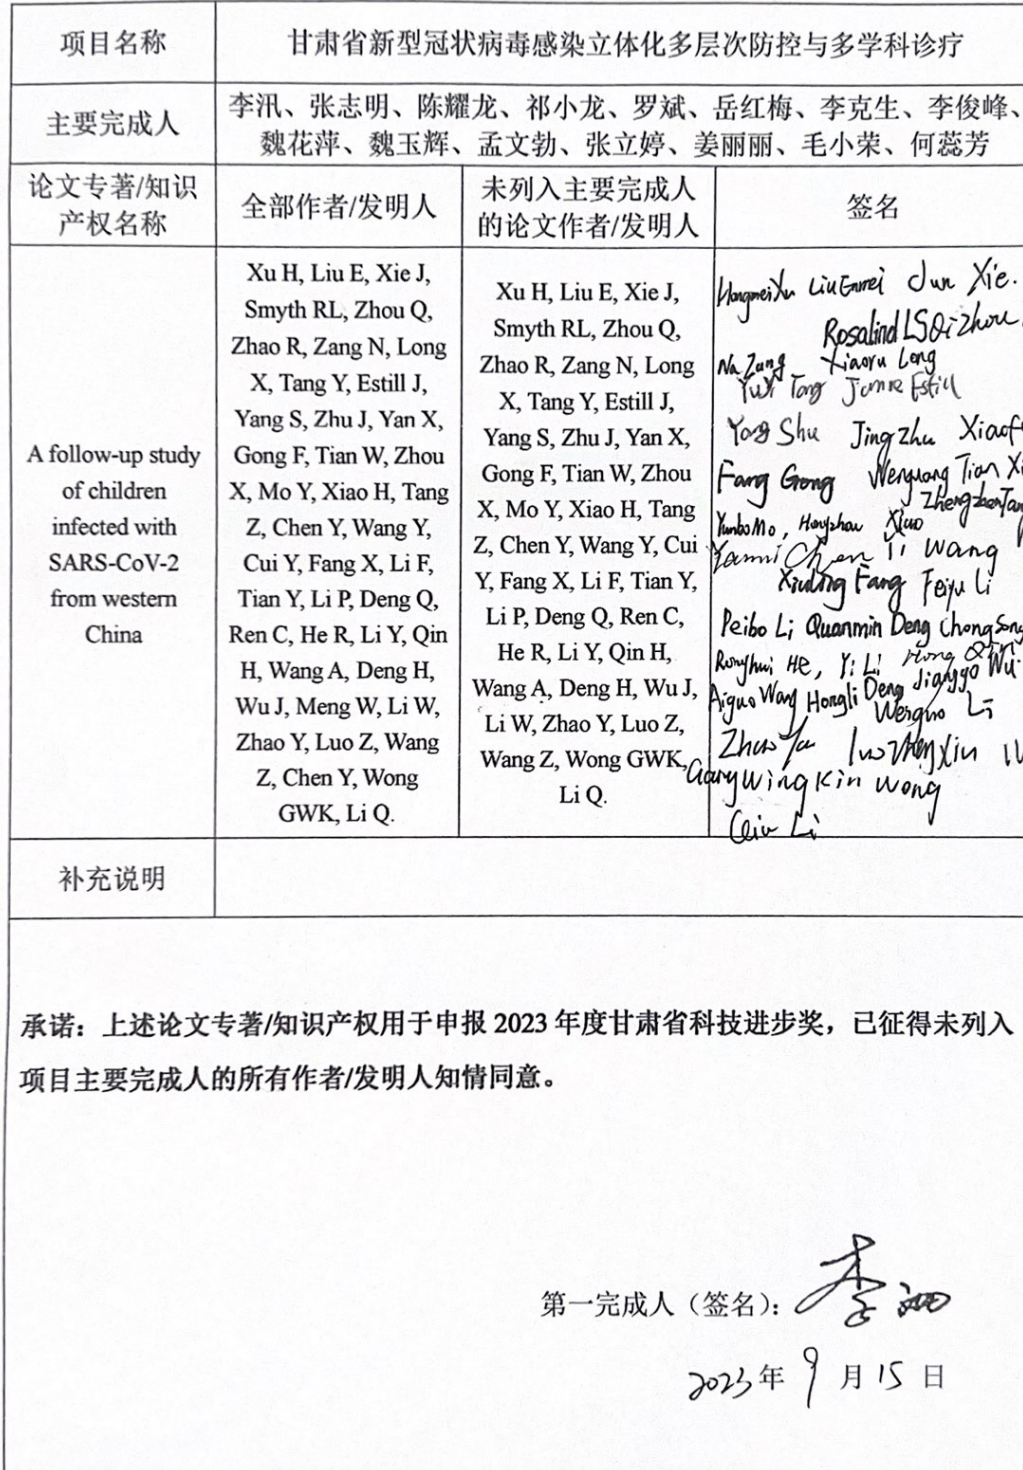 项目名称
甘肃省新型冠状病毒感染立体化多层次防控与多学科诊疗
主要完成人
李汛、张志明、陈耀龙、祁小龙、罗斌、岳红梅、李克生、李俊峰、
魏花萍、魏玉辉、孟文勃、张立婷、姜丽丽、毛小荣、何蕊芳
论文专著/知识
产权名称
全部作者/发明人
未列入主要完成人
的论文作者/发明人
签名
A follow-up study
of children
infected with
SARS-CoV-2
from western
China
Xu H, Liu E, Xie J,
Smyth RL, Zhou Q,
Zhao R, Zang N, Long
X, Tang Y, Estill J,
Yang S, Zhu J, Yan X,
Gong F, Tian W, Zhou
X, Mo Y, Xiao H, Tang
Z, Chen Y, Wang Y,
Cui Y, Fang X, Li F,
Tian Y, Li P, Deng Q,
Ren C, He R, Li Y, Qin
H, Wang A, Deng H,
Wu J, Meng W, Li W,
Zhao Y, Luo Z, Wang
Z, Chen Y, Wong
GWK, Li Q.
Xu H, Liu E, Xie J,
Smyth RL, Zhou Q,
Zhao R, Zang N, Long
X, Tang Y, Estill J,
Yang S, Zhu J, Yan X,
Gong F, Tian W, Zhou
X, Mo Y, Xiao H, Tang
Z, Chen Y, Wang Y, Cui
Y, Fang X, Li F, Tian Y,
Li P, Deng Q, Ren C,
He R, Li Y, Qin H,
Wang A, Deng H, Wu J,
Li W, Zhao Y, Luo Z,
Wang Z, Wong GWK,
Li Q.
Hongmei Xu Liu Enmei Jun Xie.
Rosalind LS Qi Zhou
Na Zang Xiaoru Long
Tang Janne Estill
Yang Shu Jing Zhu
Fang Gong Wenguang Tian
Zhengzhen Tang
Yunbo Mo, Hongzhou Xiao
Yanni Chen Yi Wang
Xiuling Fang Feiyu Li
Peibo Li Quanmin Deng Chongsong
Ronghui He, Yi Li Hong Qin
Aiguo Wang Hongli Deng Jianggo Wu
Weiguo Li
Zhao luo Zhengxiu
Gary Wing Kin Wong
Qiu Li
补充说明
承诺：上述论文专著/知识产权用于申报 2023 年度甘肃省科技进步奖，已征得未列入
项目主要完成人的所有作者/发明人知情同意。
第一完成人（签名）：李汛
2023年 9 月 15 日